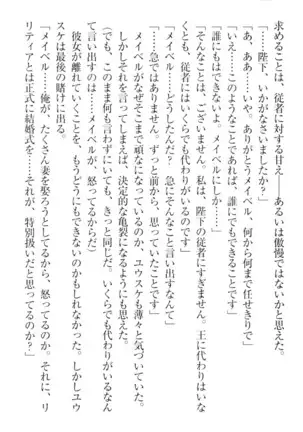 求めることは、従者に対する甘え――あるいは傲慢ではないかと思えた。
「……陛下、いかがなさいましたか？」
「あ、ああ……いや、ありがとうメイベル、何から何まで任せきりで」
「いえ……このようなことであれば、誰にでもできることです」
「誰にもはできないよ。メイベルにしか……」
「そんなことは、ございません。私は、陛下の従者にすぎません。王に代わりはいな
くとも、従者にはいくらでも代わりがいるのです」
「メイベル……どうしたんだ？　急にそんなこと言い出すなんて」
「……急ではありません。ずっと前から、思っていたことです」
メイベルがなぜそこまで頑なになっているのか、ユウスケも薄々と気づいていた。
しかしそれを言ってしまえば、決定的な亀裂になるようにも思えた。
（でも、このまま何も言わずにいても、きっと同じだ。いくらでも代わりがいるなん
て言い出すのは……メイベルが、怒ってるからだ）
彼女が離れていくことを、もうどうにもできないのかもしれない。しかしユウ
スケは最後の賭けに出る。
「メイベル……俺が、たくさん妻を娶ろうとしてるから、怒ってるのか。それに、リ
リティアとは正式に結婚式を……それが、特別扱いだと思ってるのか？」